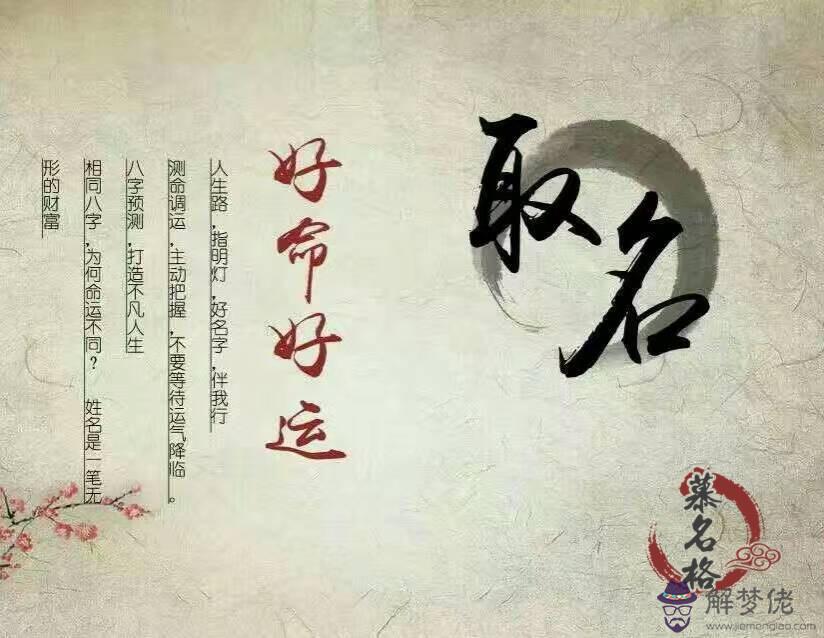 取名
好命好运
人生路,指明灯,好名字,伴我行
测命调运,主动把握,不要等待运气降临。
八字预测,打造不凡人生
相同八字,为何命运不同? 姓名是一笔无
形的财富
慕名格
解梦佬
www.jiemenglao.com